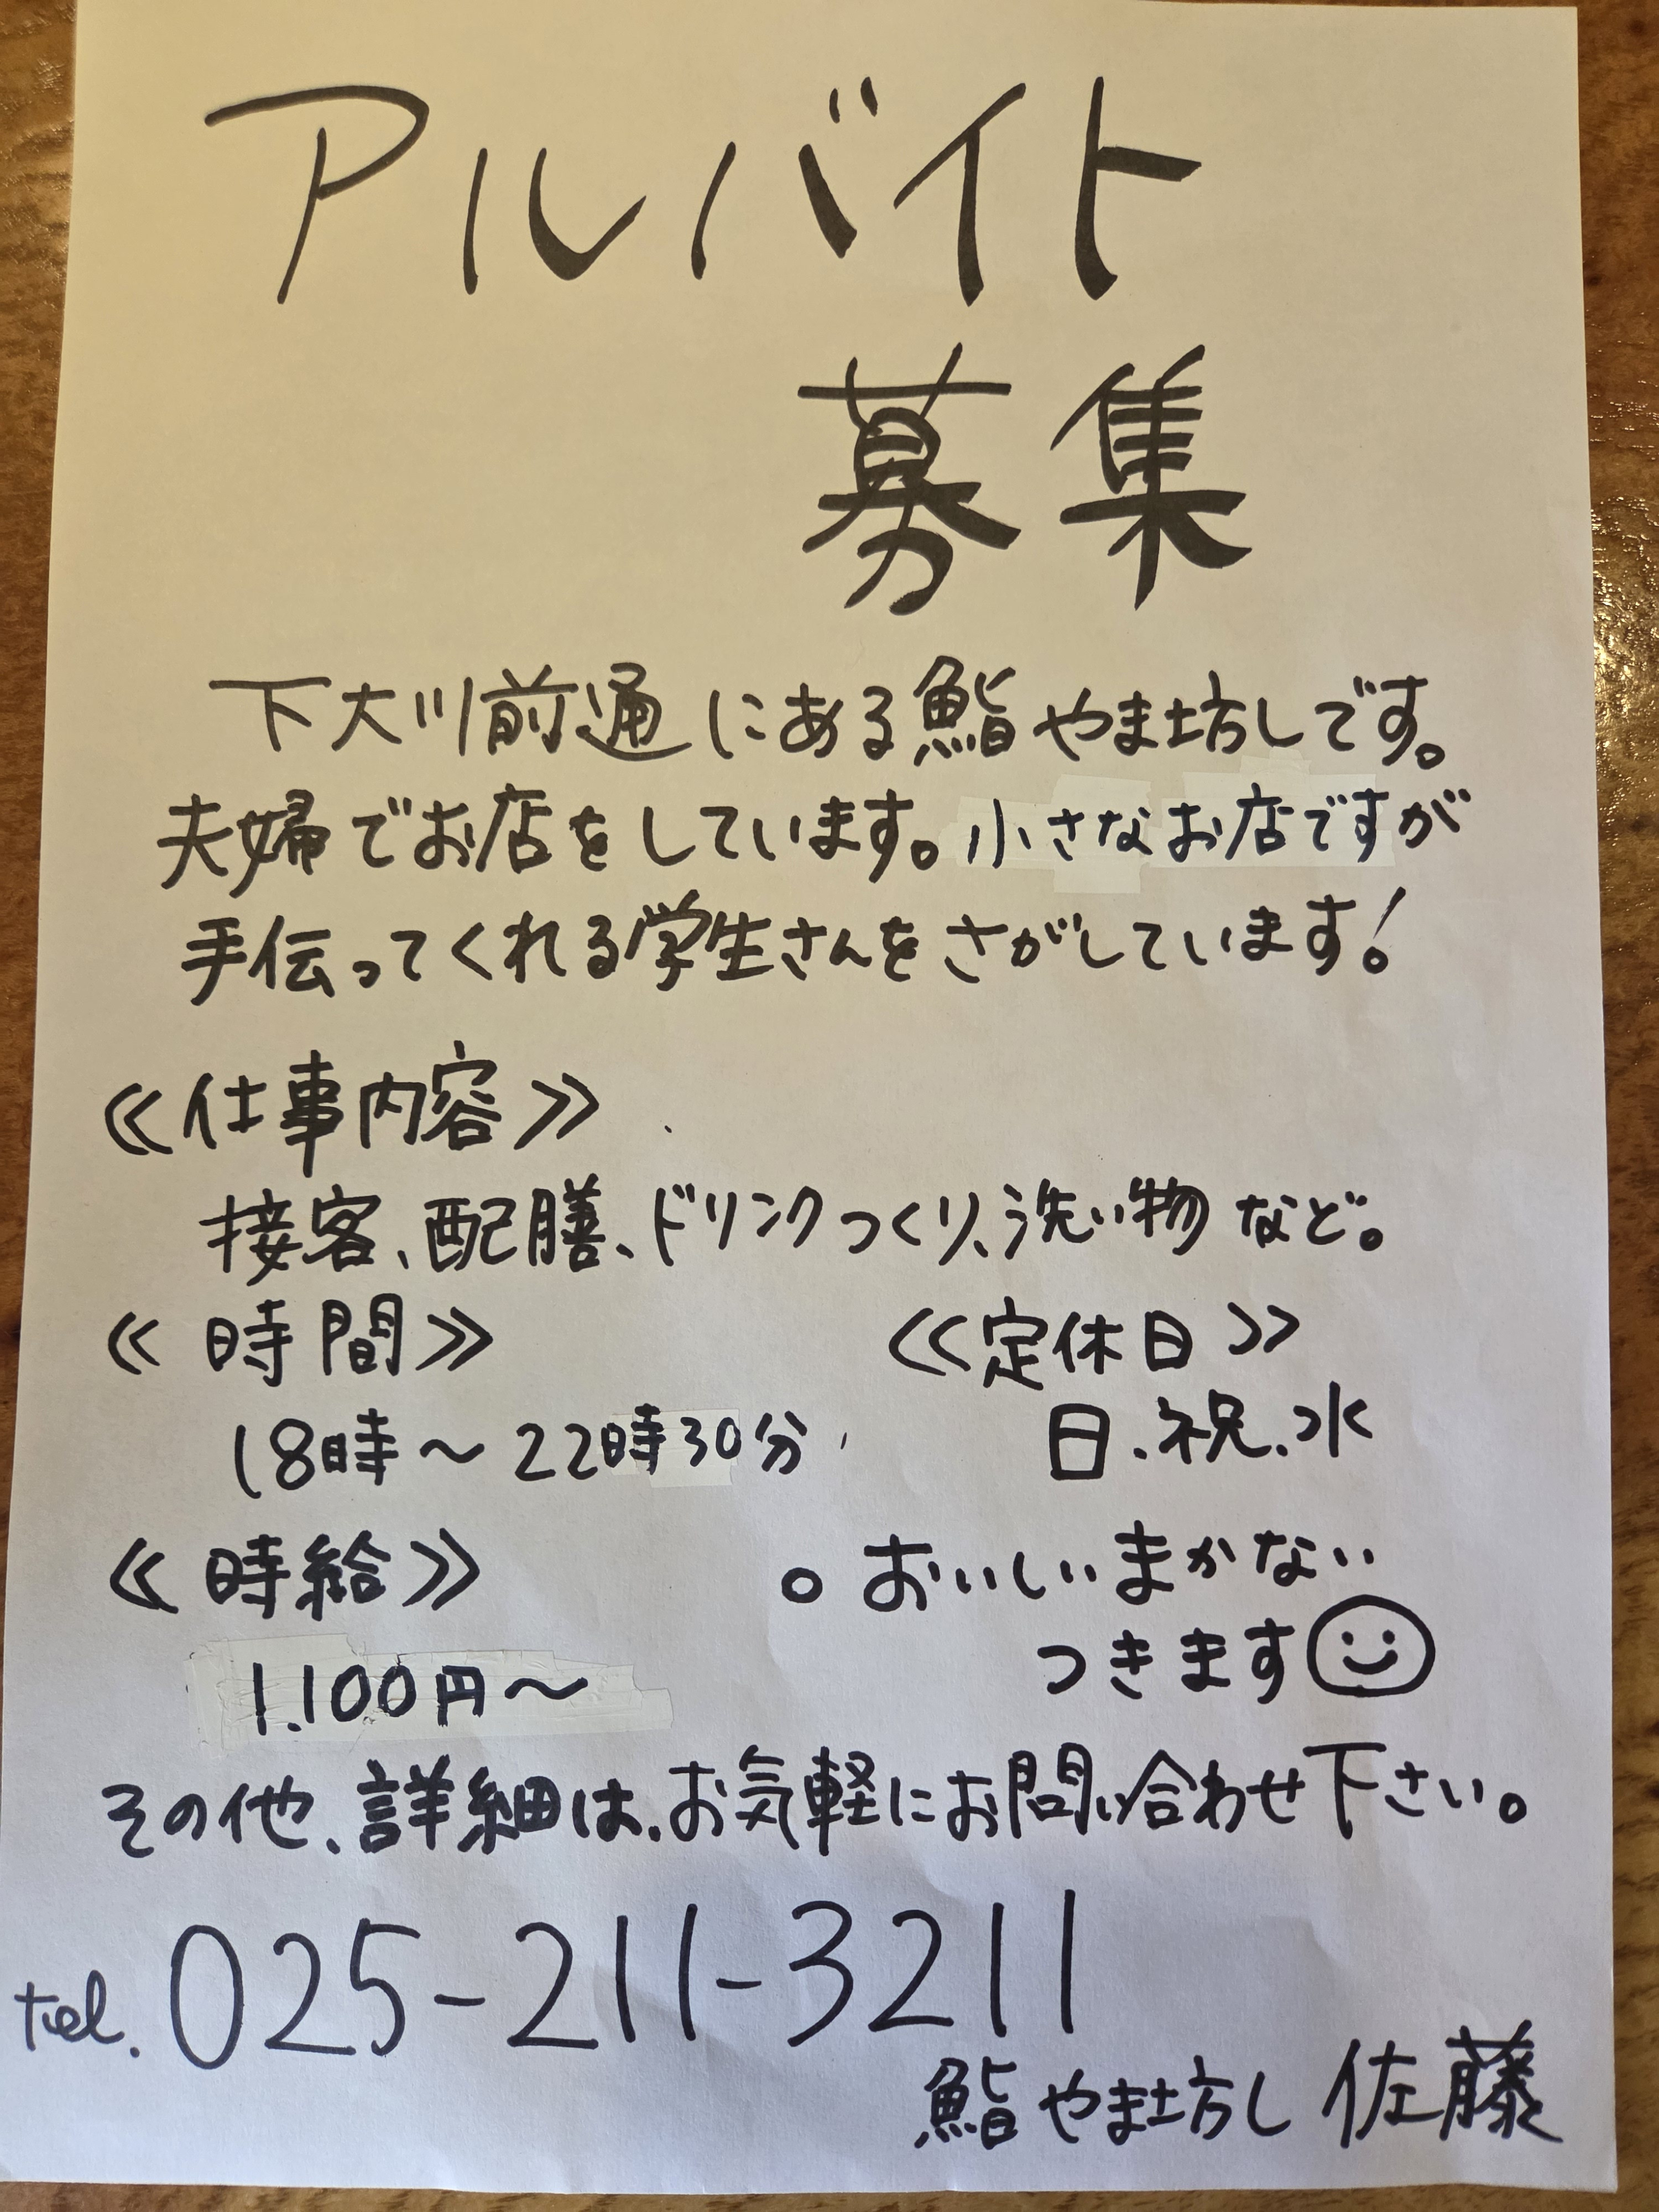 アルバイト
募集
下大川前通にある鮨やま坊しです。
夫婦でお店をしています。小さなお店ですが
手伝ってくれる学生さんをさがしています!
≪仕事内容≫
接客、配膳、ドリンクつくり、洗い物など。
≪時間≫
18時～22時30分
≪定休日≫
日、祝、水
≪時給≫
1.100円～
○おいしいまかない
つきます☺
その他、詳細は、お気軽にお問い合わせ下さい。
tel. 025-211-3211
鮨やま坊し 佐藤